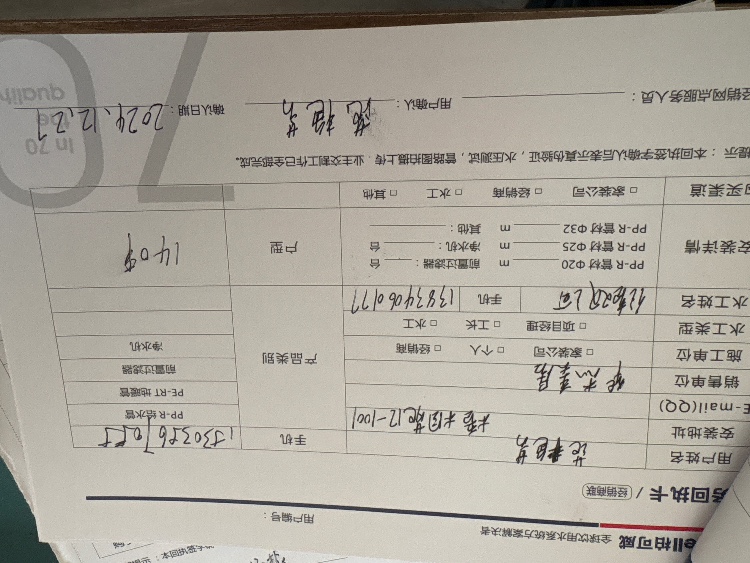 ell柏可威 全球饮用水系统方案解决者
用户编号：
务回执卡 / 经销商联
用户姓名 手机
安装地址 12-1001
E-mail(QQ)
销售单位
施工单位 □ 家装公司 □ 个人 □ 经销商
水工类型 □ 项目经理 □ 工长 □ 水工
水工姓名 手机 13834060177
产品类别
PP-R 给水管
PE-RT 地暖管
前置过滤器
净水机
安装详情
PP-R 管材 Φ20 m 前置过滤器： 台
PP-R 管材 Φ25 m 净水机： 台
PP-R 管材 Φ32 m 其他：
户型 140平
购买渠道 □ 家装公司 □ 经销商 □ 水工 □ 其他
提示：本回执签字确认后表示真伪验证，水压测试，管路图拍摄上传，业主交割工作已全部完成。
经销网点服务人员： 用户确认： 确认日期：2024.12.27
In 70
the
quality
70